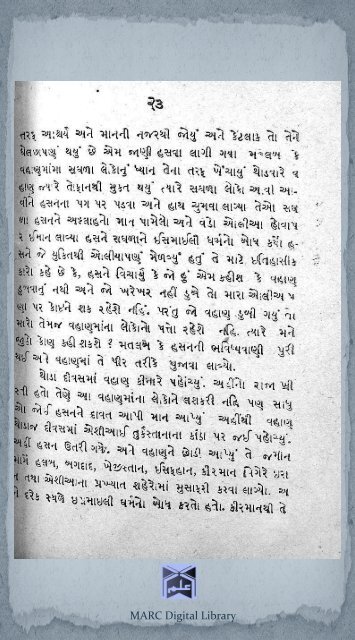 ૨૩
તરફ આશ્ચર્ય અને માનની નજરથી જોયું અને કેટલાક તો તેને
ઘેલછાપણું થયું છે એમ જાણી હસવા લાગી ગયા મતલબ કે
વહાણમાંના સઘળા લોકોનું ધ્યાન તેના તરફ ખેંચાયું થોડીવારે વ
હાણ જ્યારે તોફાનથી મુક્ત થયું ત્યારે સઘળા લોકો આવી આ-
વીને હસનના પગ પર પડવા અને હાથ ચુમવા લાગ્યા તેઓ સઘ
ળા હસનને અલ્લાહનો માન પામેલો અને વડો ઓલીઆ હોવાપ
ર ઈમાન લાવ્યા હસને સઘળાને ઈસમાઈલી ધર્મનો બોધ કર્યો હ-
સને જે યુક્તિથી ઓલીયાપણું મેળવ્યું હતું તે માટે ઇતિહાસીક
કારો કહે છે કે, હસને વિચાર્યું કે જો હું એમ કહીશ કે વહાણ
ડુબવાનું નથી અને જો ખરેખર નહીં ડુબે તો મારા ઓલીઆપ
ણા પર કોઇને શક રહેશે નહિં. પરંતુ જો વહાણ ડુબી ગયું તો
મારો તેમજ વહાણમાંના લોકોનો પત્તો રહેશે નહિ. ત્યારે મને
જુઠો કોણ કહી શકશે ? મતલબ કે હસનની ભવિષ્યવાણી પુરી
થઈ અને વહાણમાં તે પીર તરીકે પુજાવા લાગ્યો.
થોડા દીવસમાં વહાણ કીનારે પહોંચ્યું. અહીંનો રાજા ખ્રી
સ્તી હતો તેણે આ વહાણમાંના લોકોને લશકરી નહિ પણ સાધુ
ઓ જોઈ હસનને દાવત આપી માન આપ્યું અહીંથી વહાણ
થોડાજ દીવસમાં એશીઆઈ તુર્કસ્તાનના કાંઠા પર જઈ પહોંચ્યું.
અહીં હસન ઉતરી ગયો. અને વહાણને છોડી આપ્યું તે જમીન
માર્ગે હલબ, બગદાદ, ખોજીસ્તાન, ઇસફહાન, કીરમાન વિગેરે ઇરા
ન તથા એશીઆના પ્રખ્યાત શહેરોમાં મુસાફરી કરવા લાગ્યો. અ
ને દરેક સ્થળે ઇસમાઇલી ધર્મનો બોધ કરતો હતો. કીરમાનથી તે
MARC Digital Library